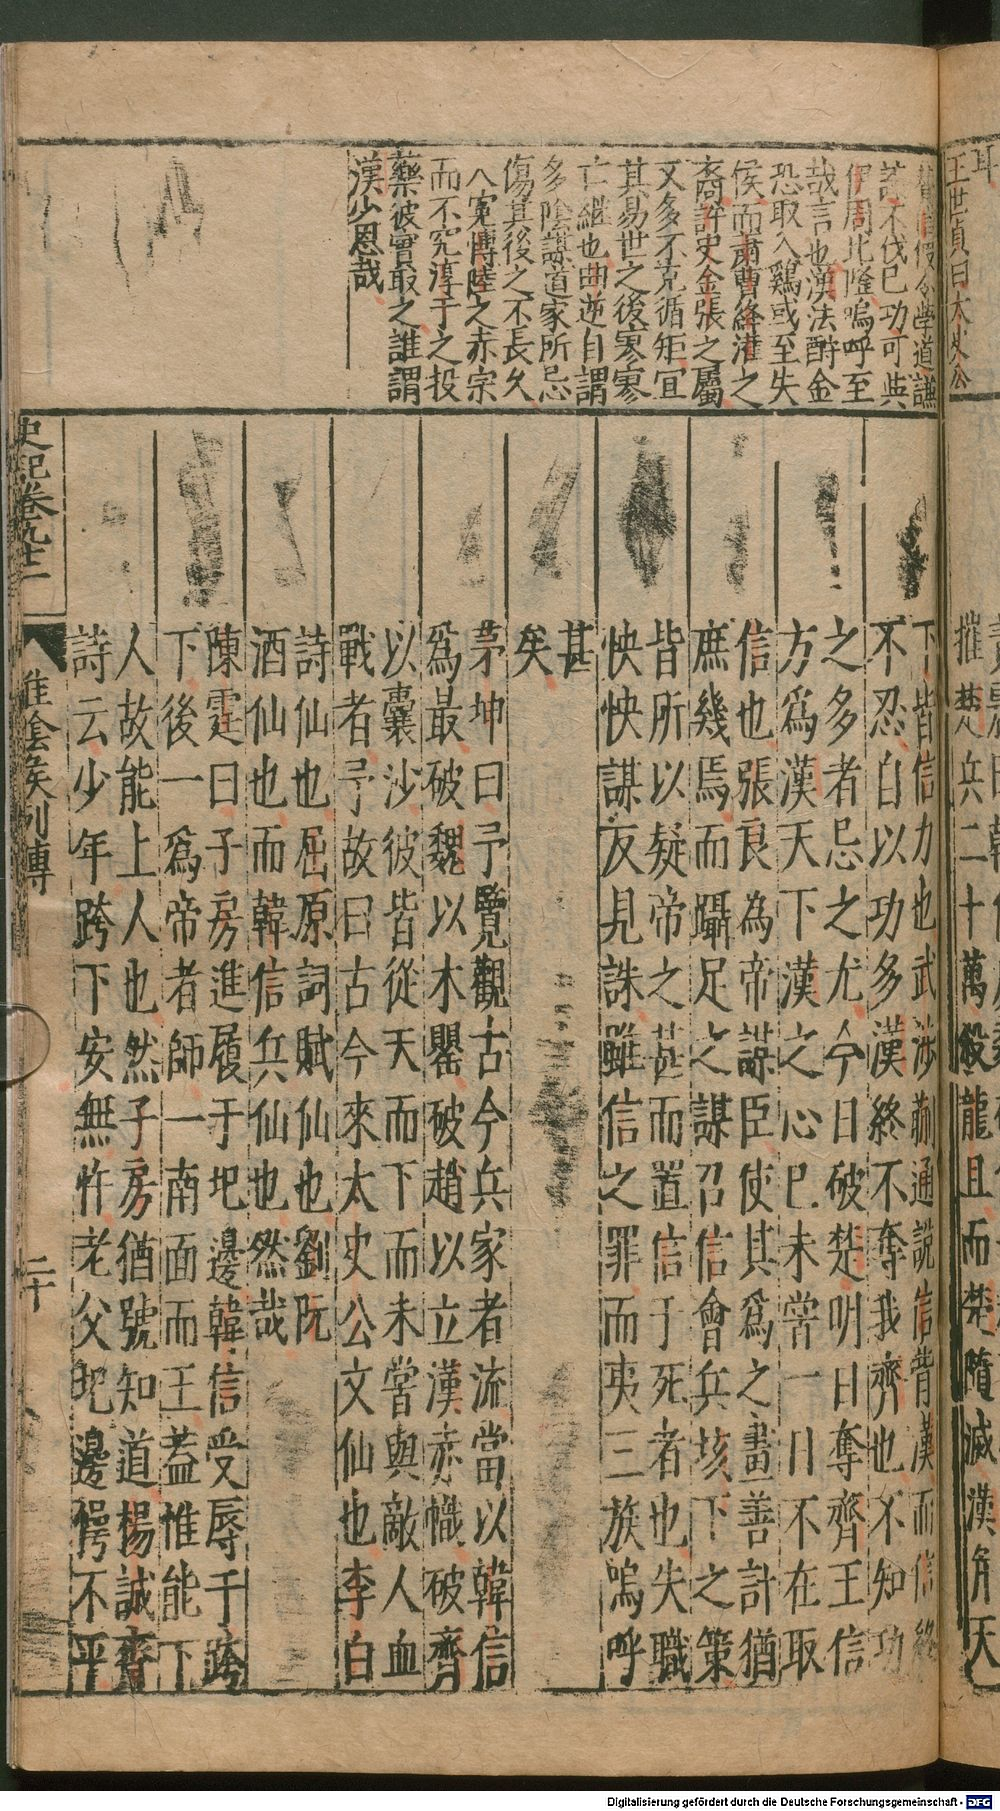 耳
王世貞曰太史公
贊信假令學道謙
讓不伐已功可與
伊周比隆嗚呼至
哉言也漢法酎金
恐取入鷄或至失
侯而肅曹絳灌之
裔許史金張之屬
又多不克循矩宜
其易世之後寥寥
亡繼也曲逆自謂
多陰謀道家所忌
傷其後之不長久
人寃博陸之赤宗
而不究淳于之投
藥彼實取之誰謂
漢少恩哉
摧楚兵二十萬殺龍且而楚隨滅漢角天
下皆信力也武涉蒯通說信背漢而信終
不忍自以功多漢終不奪我齊也不知功
之多者忌之尤今日破楚明日奪齊王信
方爲漢天下漢之心已未嘗一日不在取
信也張良為帝謀臣使其爲之畫善計猶
庶幾焉而躡足之謀召信會兵垓下之策
皆所以疑帝之甚而置信于死者也失職
怏怏謀反見誅雖信之罪而夷三族嗚呼
甚
矣
茅坤曰予覽觀古今兵家者流當以韓信
爲最破魏以木罌破趙以立漢赤幟破齊
以囊沙彼皆從天而下而未嘗與敵人血
戰者予故曰古今來太史公文仙也李白
詩仙也屈原詞賦仙也劉阮
酒仙也而韓信兵仙也然哉
陳霆曰子房進履于圯邊韓信受辱于跨
下後一爲帝者師一南面而王蓋惟能下
人故能上人也然子房猶號知道楊誠齊
詩云少年跨下安無忤老父圯邊愕不平
史記卷九十二
淮陰矦列傳
二十
Digitalisierung gefördert durch die Deutsche Forschungsgemeinschaft - DFG